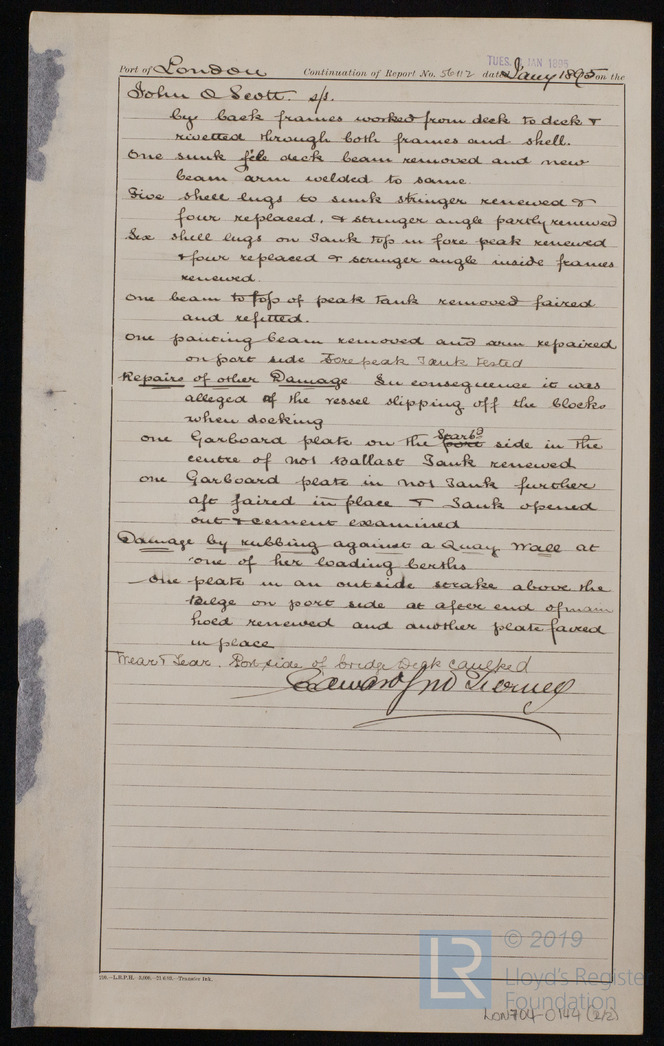 TUES. JAN 1895
Port of London Continuation of Report No. 56112 dated Jany 1895 on the
John O Scott. s/s.
by back frames worked from deck to deck &
rivetted through both frames and shell.
One sunk deck beam removed and new
beam arm welded to same.
Five shell lugs to sunk stringer renewed &
four replaced, & stringer angle partly renewed
Six shell lugs on Tank top in fore peak renewed
& four replaced & stringer angle inside frames
renewed.
One beam to top of peak tank removed faired
and refitted.
One panting beam removed and arm repaired
on port side Forepeak Tank tested
Repairs of other Damage In consequence it was
alleged of the vessel slipping off the blocks
when docking
one Garboard plate on the port Starbd side in the
centre of No1 Ballast Tank renewed
one Garboard plate in No1 Tank further
aft faired in place & Tank opened
out & cement examined
Damage by rubbing against a Quay Wall at
one of her loading berths
One plate in an outside strake above the
Bilge on port side at after end of main
hold renewed and another plate faired
in place
Wear & Tear. Port side of bridge Deck caulked
Edward Jno Tierney
210.-L.R.P.H.-3,000.-21.6.93.-Transfer Ink.
LR © 2019
Lloyd's Register
Foundation
LON704-0144 (2/2)